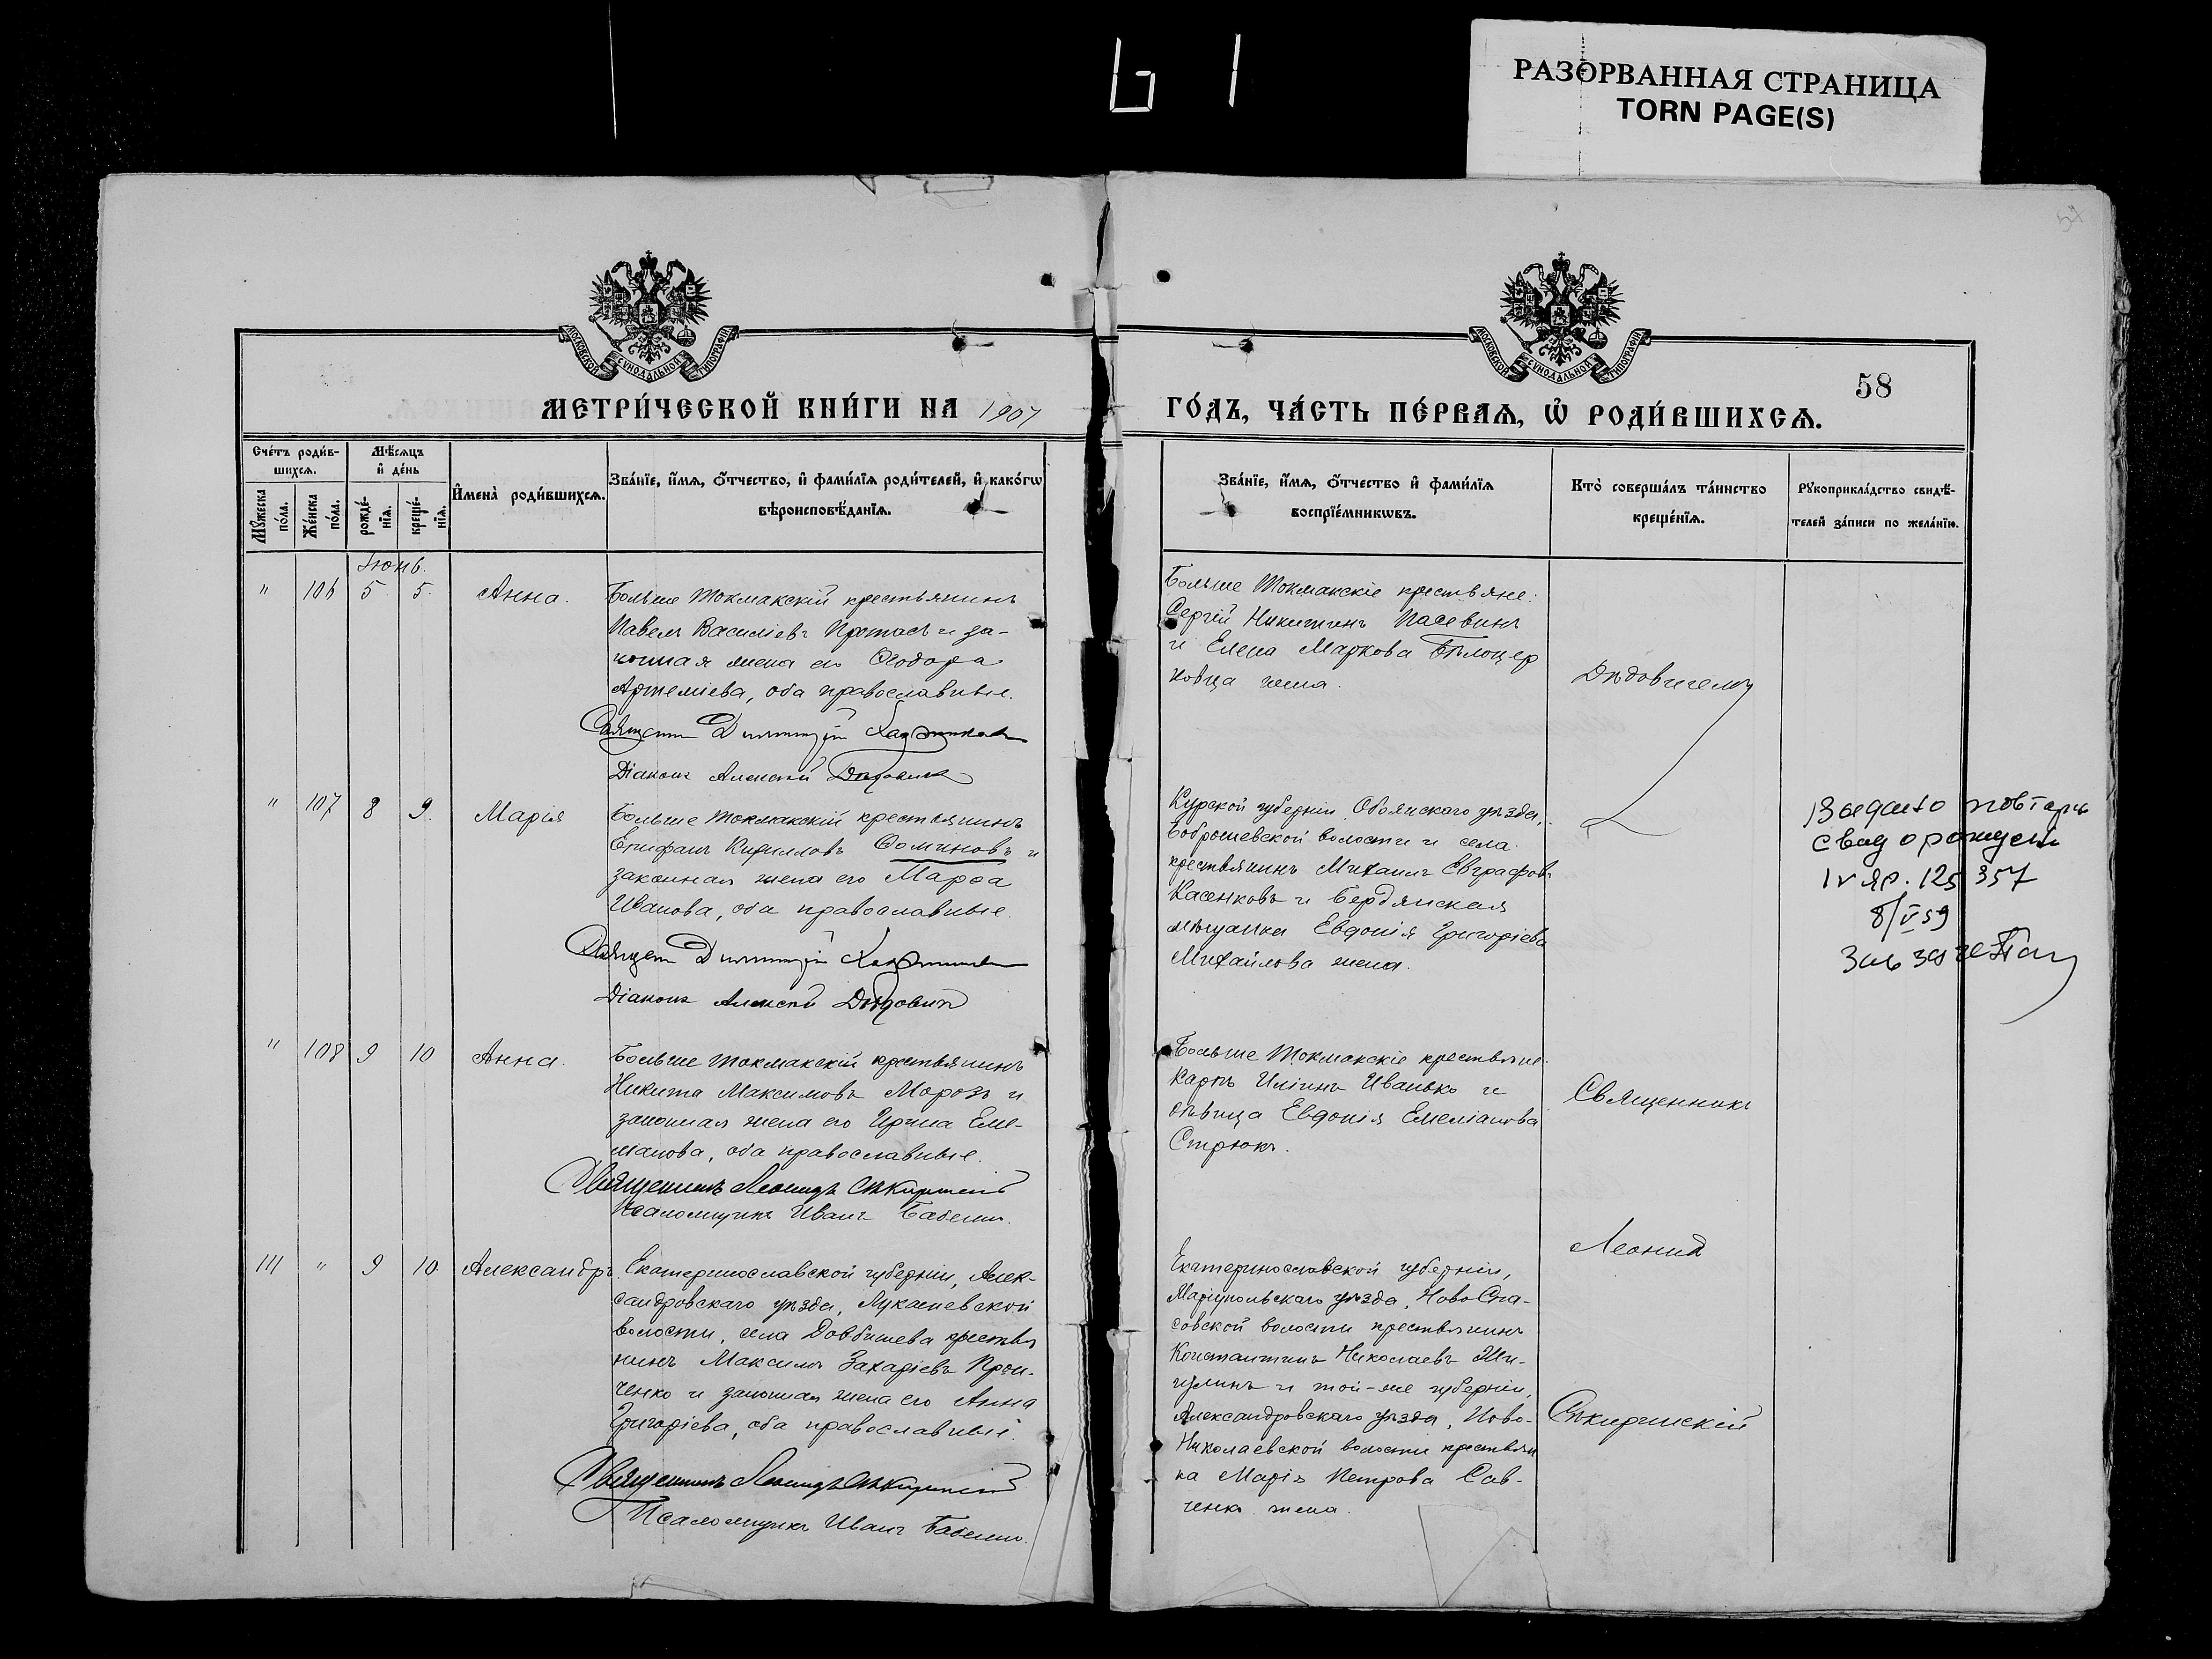 РАЗОРВАННАЯ СТРАНИЦА
TORN PAGE(S)
61
58
МОСКОВСКОЙ СѴНОДАЛЬНОЙ ТИПОГРАФІИ
МОСКОВСКОЙ СѴНОДАЛЬНОЙ ТИПОГРАФІИ
МЕТРИ́ЧЕСКОЙ КНИ́ГИ НА 1907
ГО́ДЪ, ЧА́СТЬ ПЕ́РВАѦ, Ѡ҆ РОДИ́ВШИХСѦ.
Сче́тъ роди́в-
шихсѧ.
Мѣ́сѧцъ
и҆ де́нь
Мꙋ́жеска
по́ла.
Же́нска
по́ла.
рожде́-
нїѧ.
креще́-
нїѧ.
И҆мена̀ роди́вшихсѧ.
Зва́нїе, и҆́мѧ, ѻ҆́тчество, и҆ фами́лїѧ роди́телей, и҆ како́гѡ
вѣроисповѣ́данїѧ.
Зва́нїе, и҆́мѧ, ѻ҆́тчество и҆ фами́лїѧ
воспрїе́мникѡвъ.
Кто̀ соверша́лъ та́инство
креще́нїѧ.
Рꙋкоприкла́дство свидѣ́-
телей за́писи по жела́нїю.
Іюнь.
" 106 5 5. Анна.
Больше Токмакскій крестьянинъ
Павелъ Василіевъ Протасъ и за-
конная жена его Ѳеодора
Артеміева, оба православные.
Священ Димитрій
Діаконъ Алексій Дѣдовичъ
Больше Токмакскіе крестьяне:
Сергій Никитинъ Пасевинъ
и Елена Маркова Бѣлоцер
ковца жена.
Дѣдовичемъ
" 107 8 9. Марія
Больше Токмакскій крестьянинъ
Епифанъ Кирилловъ Ѳоминовъ и
законная жена его Марѳа
Иванова, оба православные.
Священ Димитрій
Діаконъ Алексій Дѣдовичъ
Курской губерніи, Обоянскаго уѣзда,
Бобрышевской волости и села
крестьянинъ Михаилъ Евграфовъ
Касенковъ и Бердянская
мѣщанка Евдокія Григоріева
Михайлова жена.
Выдано повторн
свид о рожден
IV ЯР. 125 357
8/V 59
Зав
" 108 9 10 Анна.
Больше Токмакскій крестьянинъ
Никита Максимовъ Морозъ и
законная жена его Ирина Еме-
ліанова, оба православные.
Священникъ Леонидъ Сѣкирскій
Псаломщикъ Иванъ Бабенко.
Больше Токмакскіе крестьяне:
Карпъ Иліинъ Иванько и
дѣвица Евдокія Емеліанова
Стрюкъ.
Священникъ
Леонид
111 " 9 10. Александръ.
Екатеринославской губерніи, Алек-
сандровскаго уѣзда, Лукашевской
волости, села Довбишева крестья
нинъ Максимъ Захаріевъ Прой-
ченко и законная жена его Анна
Григоріева, оба православные.
Священникъ Леонидъ Сѣкирскій
Псаломщикъ Иванъ Бабенко.
Екатеринославской губерніи,
Маріупольскаго уѣзда, Ново Спа-
совской волости крестьянинъ
Константинъ Николаевъ Жи-
гулинъ и той-же губерніи,
Александровскаго уѣзда, Ново-
Николаевской волости крестьян
ка Марія Петрова Сав-
ченко жена.